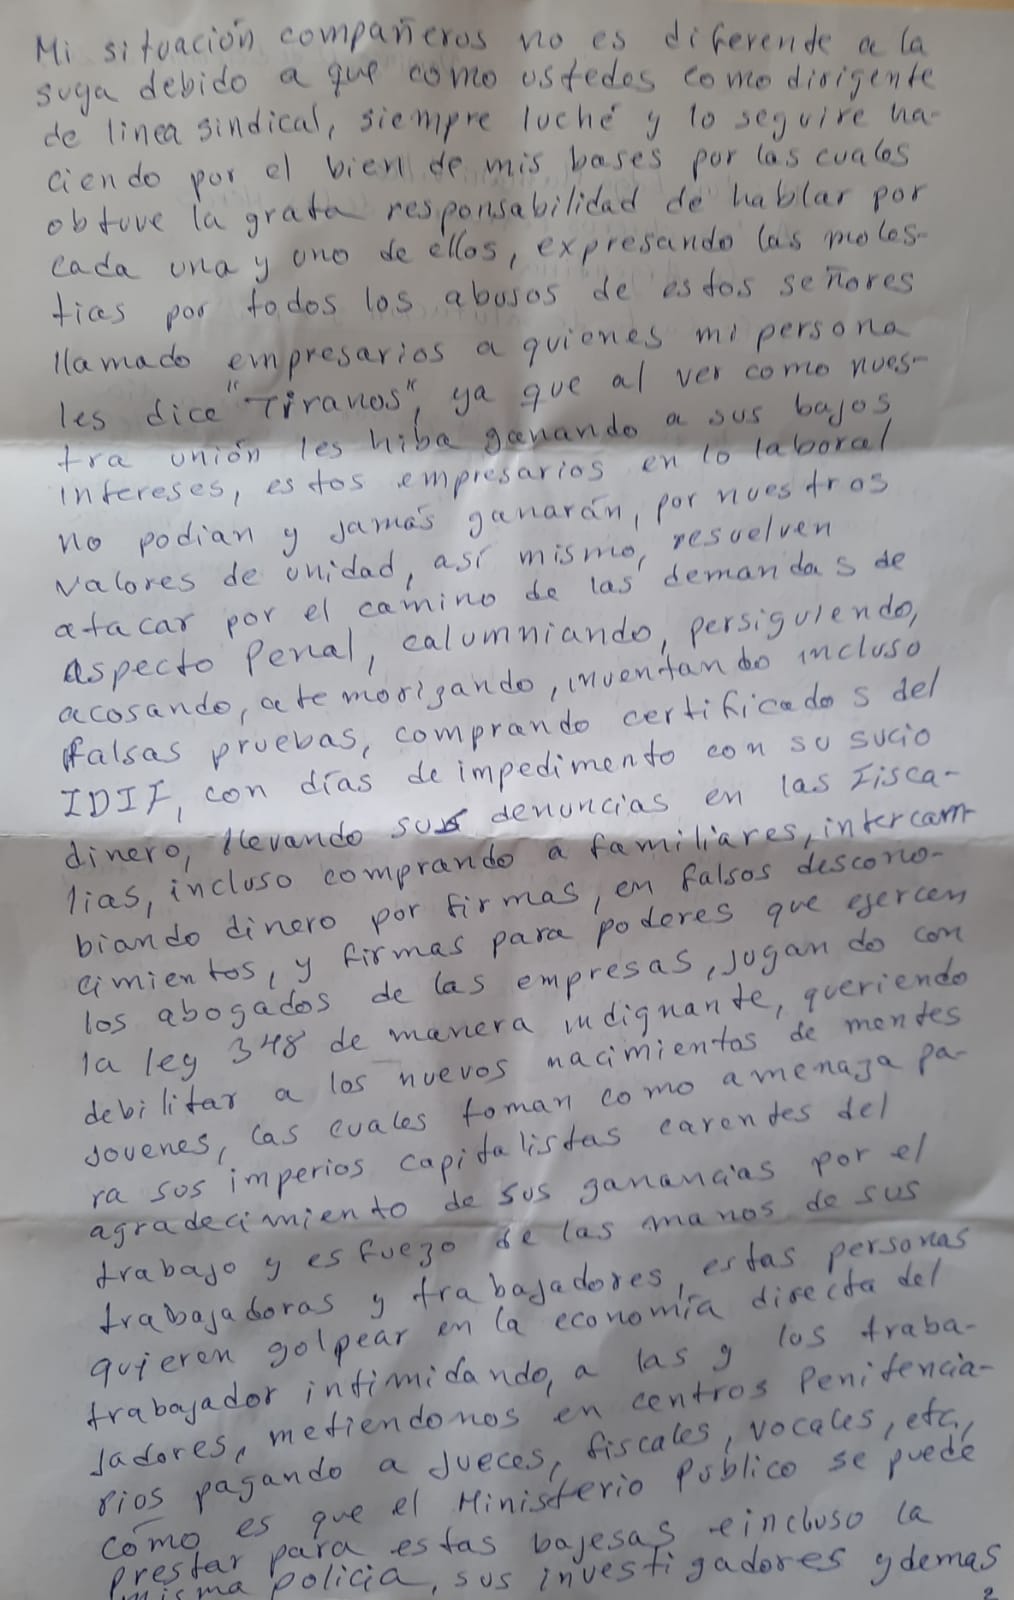 Mi situación compañeros no es diferente a la
suya debido a que como ustedes como dirigente
de linea sindical, siempre luché y lo seguire ha-
ciendo por el bien de mis bases por las cuales
obtuve la grata responsabilidad de hablar por
cada una y uno de ellos, expresando las moles-
tias por todos los abusos de estos señores
llamado empresarios a quienes mi persona
les dice "Tiranos", ya que al ver como nues-
tra unión les hiba ganando a sus bajos
intereses, estos empresarios en lo laboral
no podian y jamás ganarán, por nuestros
valores de unidad, así mismo, resuelven
atacar por el camino de las demandas de
aspecto Penal, calumniando, persiguiendo,
acosando, atemorizando, inventando incluso
falsas pruebas, comprando certificados del
IDIF, con días de impedimento con su sucio
dinero, llevando sus denuncias en las Fisca-
lias, incluso comprando a familiares, intercam-
biando dinero por firmas, en falsos descono-
cimientos, y firmas para poderes que ejercen
los abogados de las empresas, jugando con
la ley 348 de manera indignante, queriendo
debilitar a los nuevos nacimientos de mentes
jovenes, las cuales toman como amenaza pa-
ra sus imperios capitalistas carentes del
agradecimiento de sus ganancias por el
trabajo y esfuezo de las manos de sus
trabajadoras y trabajadores, estas personas
quieren golpear en la economía directa del
trabajador intimidando, a las y los traba-
jadores, metiendonos en centros Penitencia-
rios pagando a Jueces, fiscales, vocales, etc,
como es que el Ministerio Publico se puede
prestar para estas bajesas e incluso la
misma policia, sus investigadores y demas
2